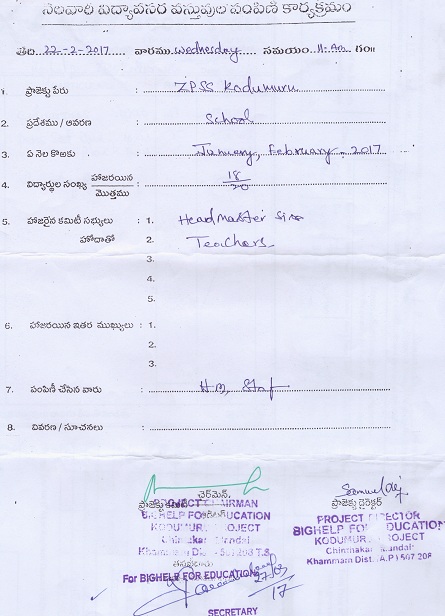 నెలవారి విద్యావసర వస్తువుల పంపిణి కార్యక్రమం
తేది 22-2-2017 వారము wednesday సమయం 11-00 గం॥
1. ప్రాజెక్టు పేరు : ZPSS Kodumuru
2. ప్రదేశము / ఆవరణ : School
3. ఏ నెల కొఱకు : January, February - 2017
4. విద్యార్థుల సంఖ్య హాజరయిన / మొత్తము : 18 / 20
5. హాజరైన కమిటీ సభ్యులు : 1. Headmaster Sir
హోదాతో 2. Teachers
3.
4.
5.
6. హాజరయిన ఇతర ముఖ్యులు : 1.
2.
3.
7. పంపిణీ చేసిన వారు : H.M, Staf
8. వివరణ / సూచనలు :
ఛైర్మెన్,
ప్రాజెక్టు కమిటీ
PROJECT CHAIRMAN
BIGHELP FOR EDUCATION
KODUMUR PROJECT
Chinthakani Mandal
Khammam Dist. - 507208 T.S.
Samuel
ప్రాజెక్టు డైరెక్టర్
PROJECT DIRECTOR
BIGHELP FOR EDUCATION
KODUMUR PROJECT
Chinthakani Mandal
Khammam Dist. (A.P) 507 208
For BIGHELP FOR EDUCATION
17
SECRETARY